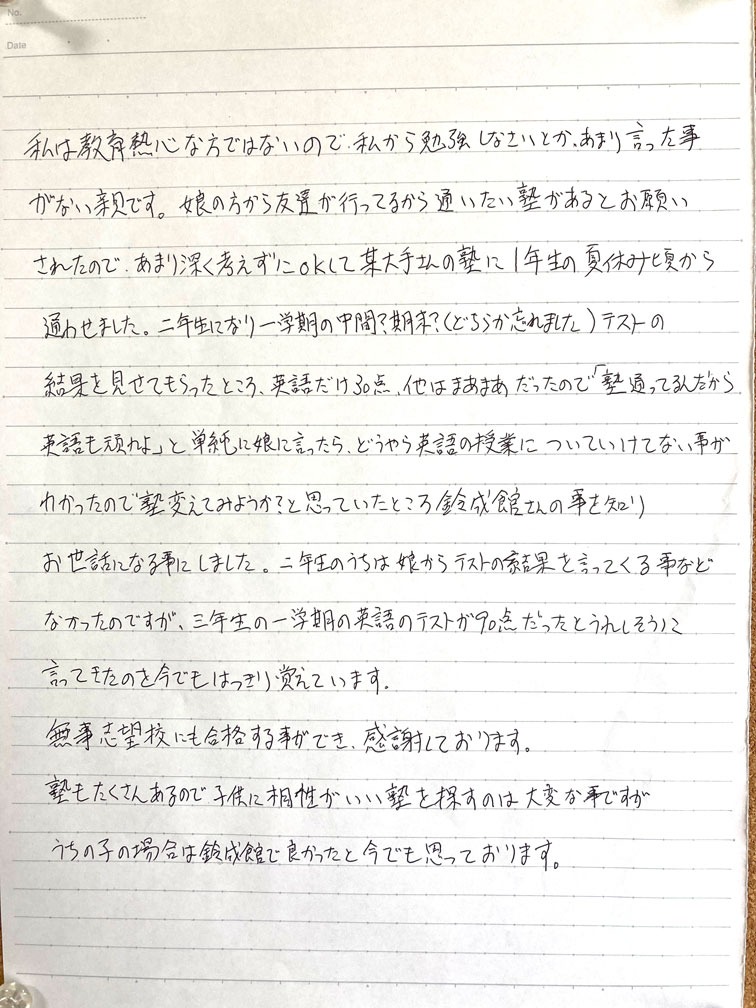 No.
Date
私は教育熱心な方ではないので、私から勉強しなさいとか、あまり言った事
がない親です。娘の方から友達が行ってるから通いたい塾があるとお願い
されたので、あまり深く考えずにokして某大手さんの塾に1年生の夏休み頃から
通わせました。二年生になり一学期の中間?期末?(どちらか忘れました)テストの
結果を見せてもらったところ、英語だけ30点、他はまあまあだったので「塾通ってるんだから
英語も頑れよ」と単純に娘に言ったら、どうやら英語の授業についていけてない事が
わかったので塾変えてみようか?と思っていたところ鈴成館さんの事を知り
お世話になる事にしました。二年生のうちは娘からテストの結果を言ってくる事など
なかったのですが、三年生の一学期の英語のテストが90点だったとうれしそうに
言ってきたのを今でもはっきり覚えています.
無事志望校にも合格する事ができ、感謝しております。
塾もたくさんあるので子供に相性がいい塾を探すのは大変な事ですが
うちの子の場合は鈴成館で良かったと今でも思っております。